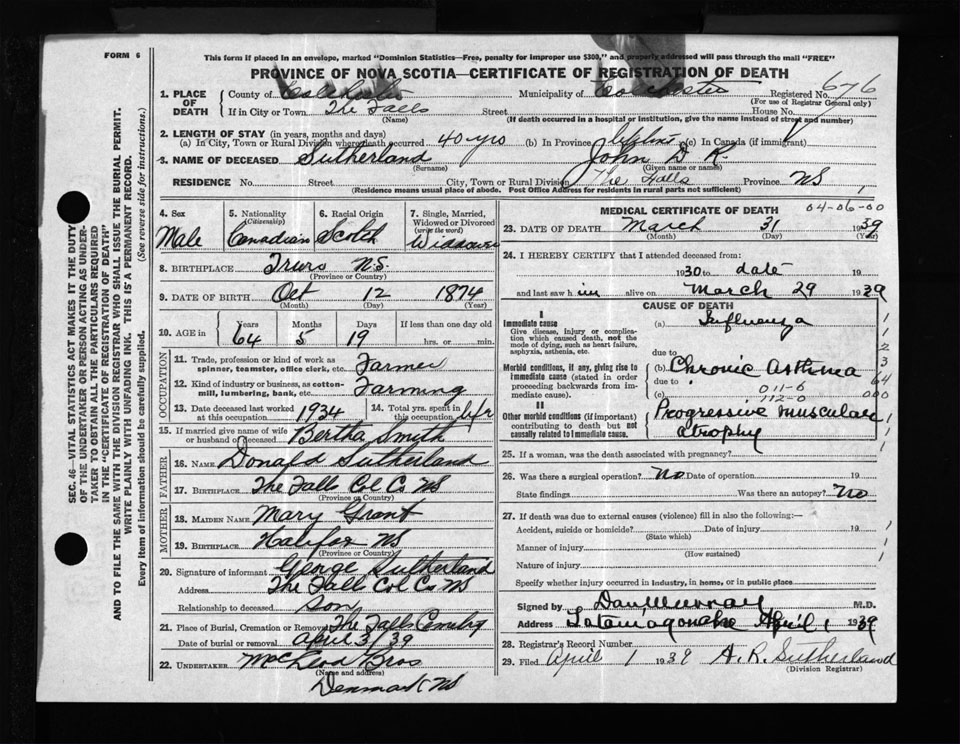 FORM 6
This form if placed in an envelope, marked "Dominion Statistics—Free, penalty for improper use $300," and properly addressed will pass through the mail "FREE"
PROVINCE OF NOVA SCOTIA—CERTIFICATE OF REGISTRATION OF DEATH
1. PLACE OF DEATH County of Colchester Municipality of Colchester Registered No. 676
(For use of Registrar General only)
If in City or Town The Falls Street House No.
(Name) (If death occurred in a hospital or institution, give the name instead of street and number)
2. LENGTH OF STAY (in years, months and days)
(a) In City, Town or Rural Division where death occurred 40 yrs (b) In Province (c) In Canada (if immigrant)
3. NAME OF DECEASED Sutherland John D R.
(Surname) (Given name or names)
RESIDENCE No. Street City, Town or Rural Division The Falls Province NS
(Residence means usual place of abode. Post Office Address for residents in rural parts not sufficient)
4. Sex Male
5. Nationality (Citizenship) Canadian
6. Racial Origin Scotch
7. Single, Married, Widowed or Divorced (write the word) Widower
8. BIRTHPLACE Truro N.S.
(Province or Country)
9. DATE OF BIRTH Oct 12 1874
(Month) (Day) (Year)
10. AGE in Years Months Days If less than one day old
64 5 19 hrs. or min.
OCCUPATION
11. Trade, profession or kind of work as spinner, teamster, office clerk, etc. Farmer
12. Kind of industry or business, as cotton-mill, lumbering, bank, etc. Farming
13. Date deceased last worked at this occupation 1934
14. Total yrs. spent in this occupation life
15. If married give name of wife or husband of deceased Bertha Smith
FATHER
16. NAME Donald Sutherland
17. BIRTHPLACE The Falls Col Co NS
(Province or Country)
MOTHER
18. MAIDEN NAME Mary Grant
19. BIRTHPLACE Halifax NS
(Province or Country)
20. Signature of informant George Sutherland
Address The Falls Col Co NS
Relationship to deceased Son
21. Place of Burial, Cremation or Removal The Falls Cemetry
Date of burial or removal April 3/39
22. UNDERTAKER McLeod Bros
(Name and address)
Denmark NS
MEDICAL CERTIFICATE OF DEATH 04-06-00
23. DATE OF DEATH March 31 1939
(Month) (Day) (Year)
24. I HEREBY CERTIFY that I attended deceased from:
1930 to date 19
and last saw him alive on March 29 1939
CAUSE OF DEATH
I
Immediate cause (a) Influenza
Give disease, injury or complication which caused death, not the mode of dying, such as heart failure, asphyxia, asthenia, etc.
due to
Morbid conditions, if any, giving rise to immediate cause (stated in order proceeding backwards from immediate cause). (b) Chronic Asthma
due to 011-6
(c) 112-0
II
Other morbid conditions (if important) contributing to death but not causally related to immediate cause. Progressive muscular atrophy
1
1
2
3
64
000
25. If a woman, was the death associated with pregnancy?
26. Was there a surgical operation? No Date of operation 19
State findings Was there an autopsy? No
27. If death was due to external causes (violence) fill in also the following:—
Accident, suicide or homicide? Date of injury 19
(State which)
Manner of injury
(How sustained)
Nature of injury
Specify whether injury occurred in industry, in home, or in public place
Signed by Dan Murray M.D.
Address Tatamagouche April 1 1939
28. Registrar's Record Number
29. Filed April 1 1939 A. R. Sutherland
(Division Registrar)
SEC. 46—VITAL STATISTICS ACT MAKES IT THE DUTY
OF THE UNDERTAKER OR PERSON ACTING AS UNDER-
TAKER TO OBTAIN ALL THE PARTICULARS REQUIRED
IN THE "CERTIFICATE OF REGISTRATION OF DEATH"
AND TO FILE THE SAME WITH THE DIVISION REGISTRAR WHO SHALL ISSUE THE BURIAL PERMIT.
WRITE PLAINLY WITH UNFADING INK. THIS IS A PERMANENT RECORD.
Every item of information should be carefully supplied. (See reverse side for instructions.)